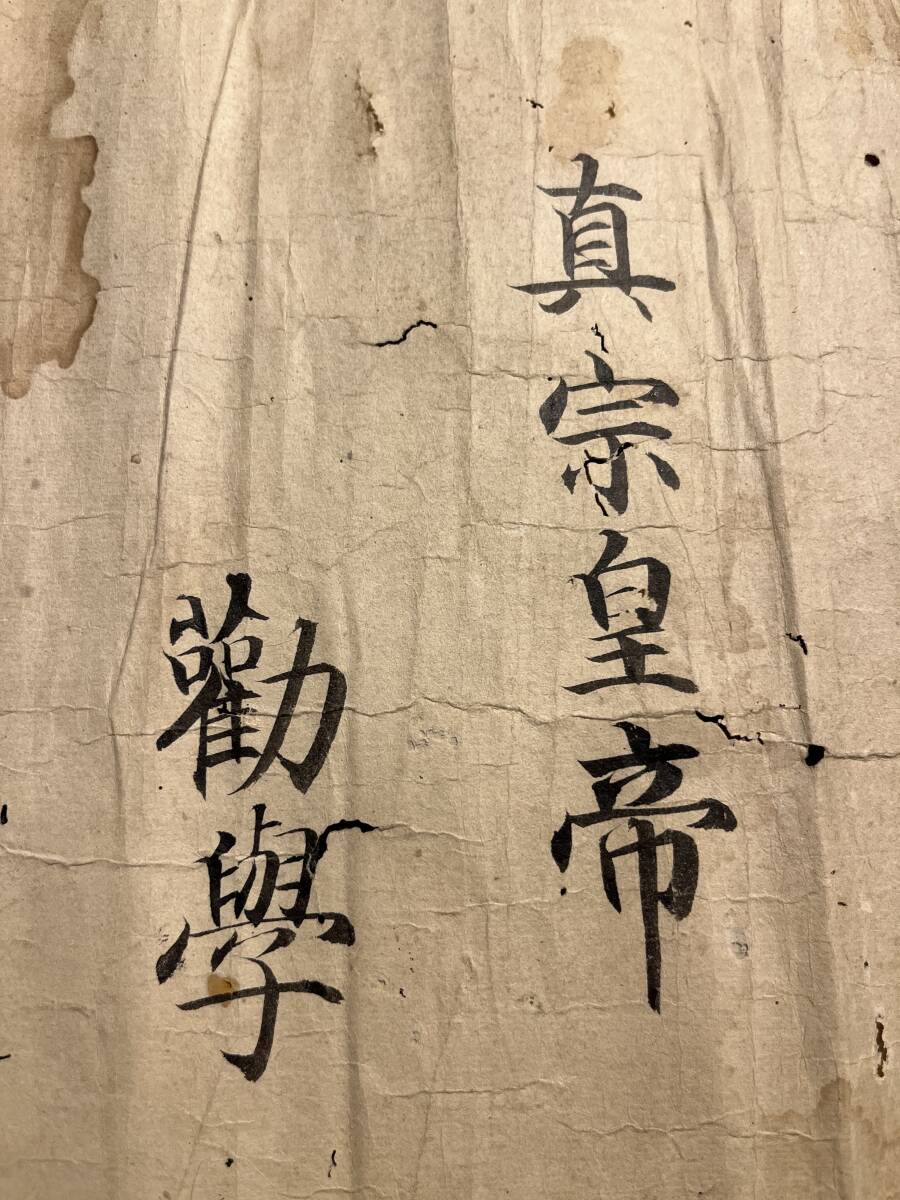 真宗皇帝
勸學